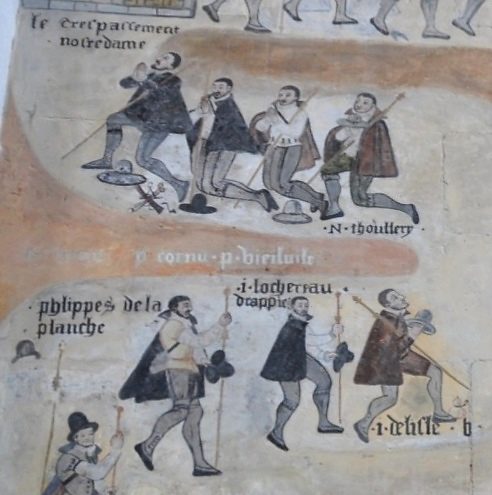 le trespassement
nostredame
·N· thoullery·
p cornu·p·Vieiluile
·phlippes de la
planche
·i·locherrau
drappie
·i·delisle· b·